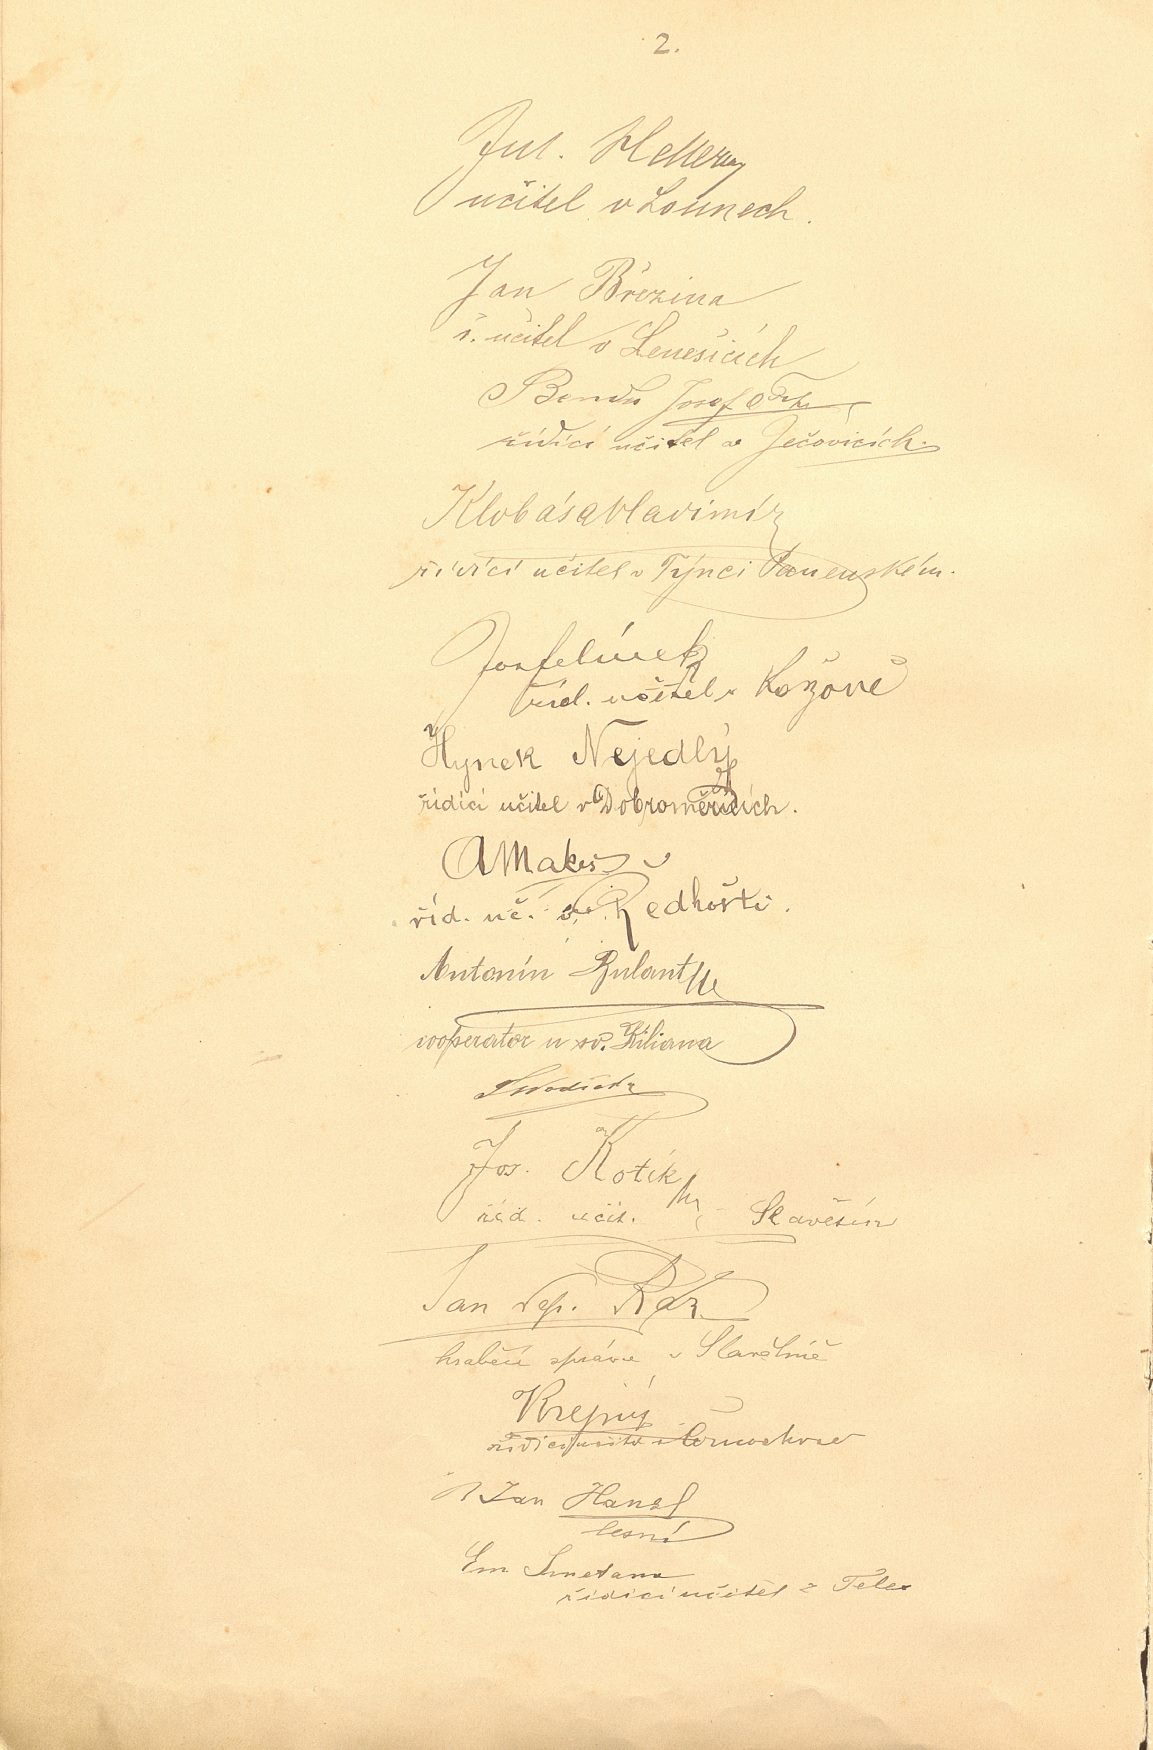 2.
Jul. Hellerey
učitel v Lounech.
Jan Březina
ř. učitel v Lenešicích
Benda Josef
řídící učitel v Ječovicích.
Klobása Vladimír
řídící učitel v Týnci Panenském.
Jos Jelínek
říd. učitel v Kožově
Hynek Nejedlý
řídící učitel v Dobroměřicích.
A Makeš
říd. uč. v Redhošti.
Antonín
cooperator u sv. Kiliana
Jos. Kotík
říd. učit. Slavětín
Jan Ráž
hraběcí správce v Slavětíně
Krejný
řídící učitel
Jan Hanzl
lesní
Em Smetana
řídící učitel z Telec